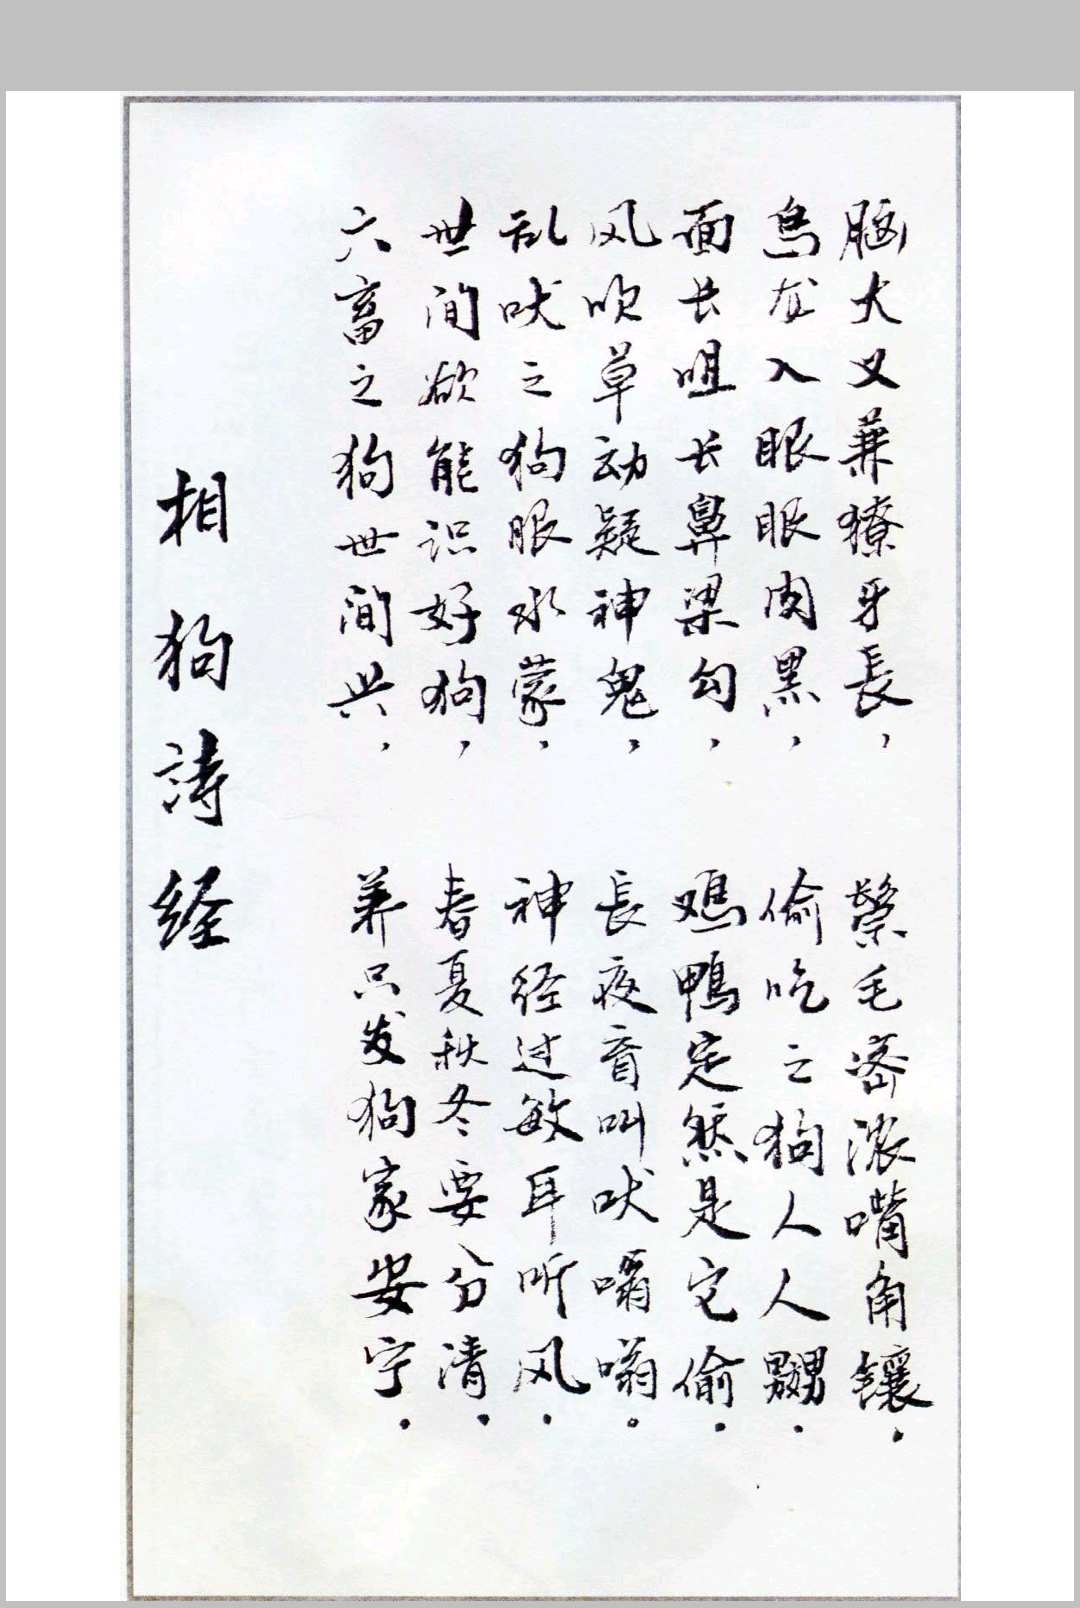 脑大又兼獠牙長，鬃毛密浓嘴角镶。
烏龙入眼眼肉黑，偷吃之狗人人嬲。
面长咀长鼻梁勾，鸡鴨定然是它偷。
风吹草动疑神鬼，長夜盲叫吠嗡嗡。
乱吠之狗眼水蒙，神经过敏耳听风。
世间欲能识好狗，春夏秋冬要分清。
六畜之狗世间兴，养只发狗家安宁。
相狗詩经